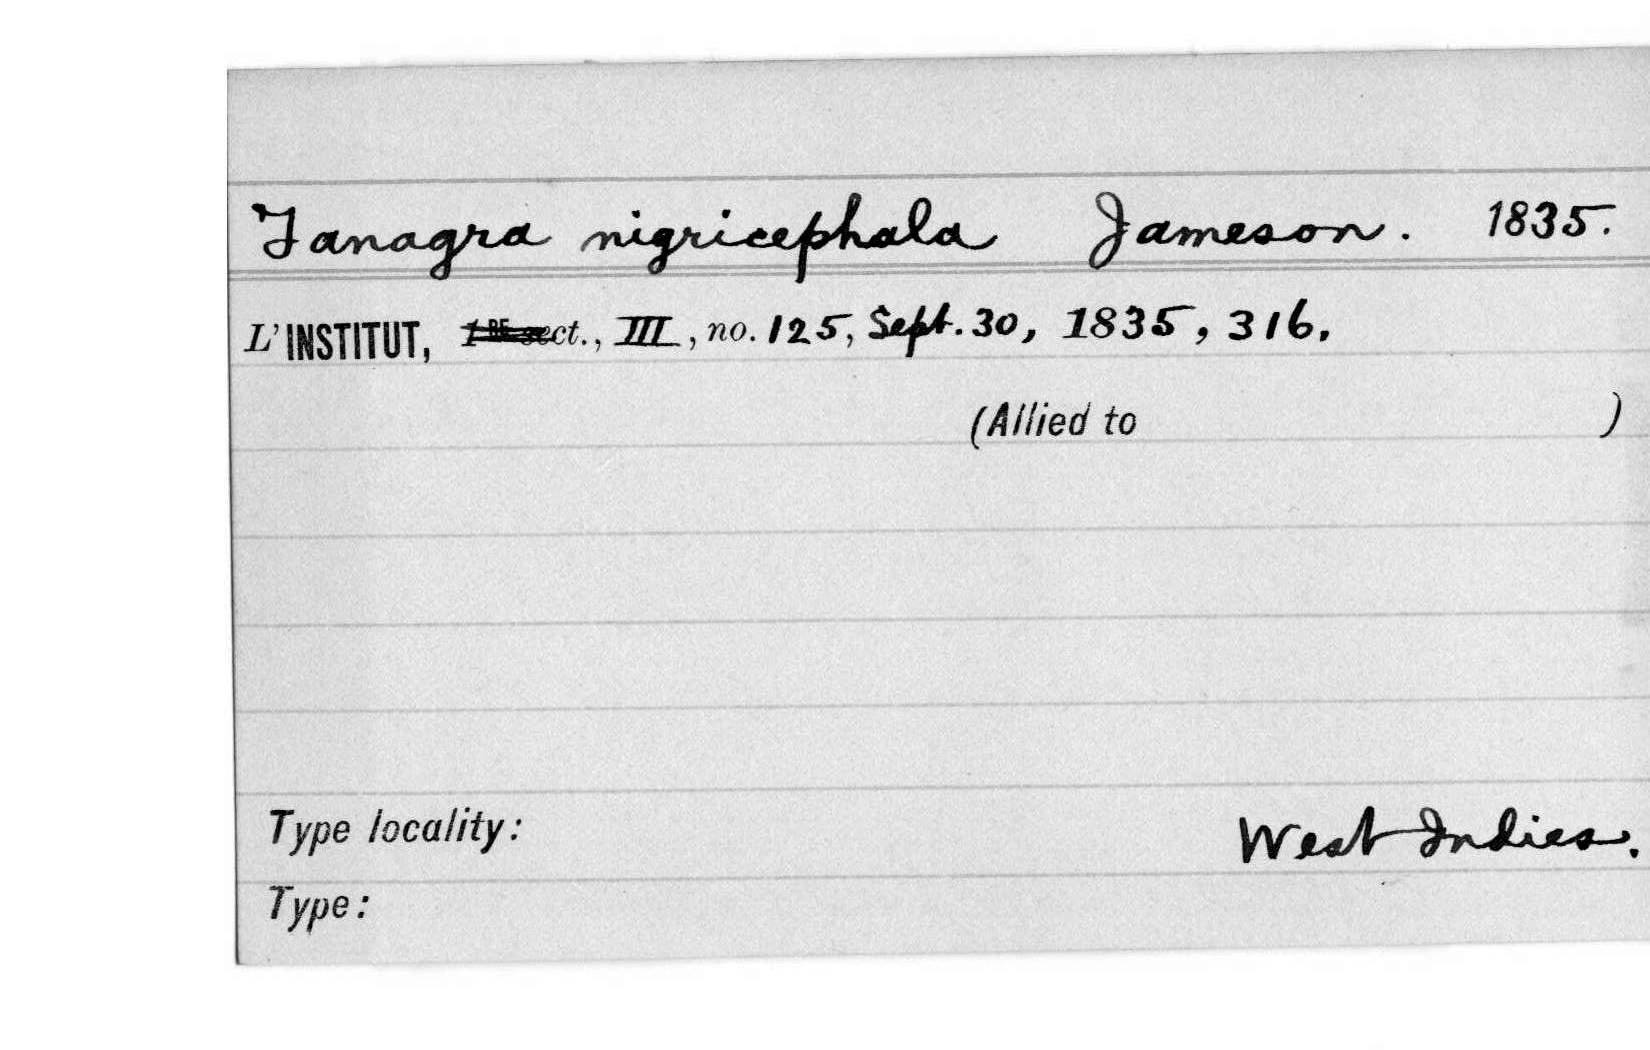 Tanagra nigricephala Jameson. 1835.
L'INSTITUT, 1RE sect., III, no. 125, Sept. 30, 1835, 316.
(Allied to )
Type locality: West Indies.
Type: